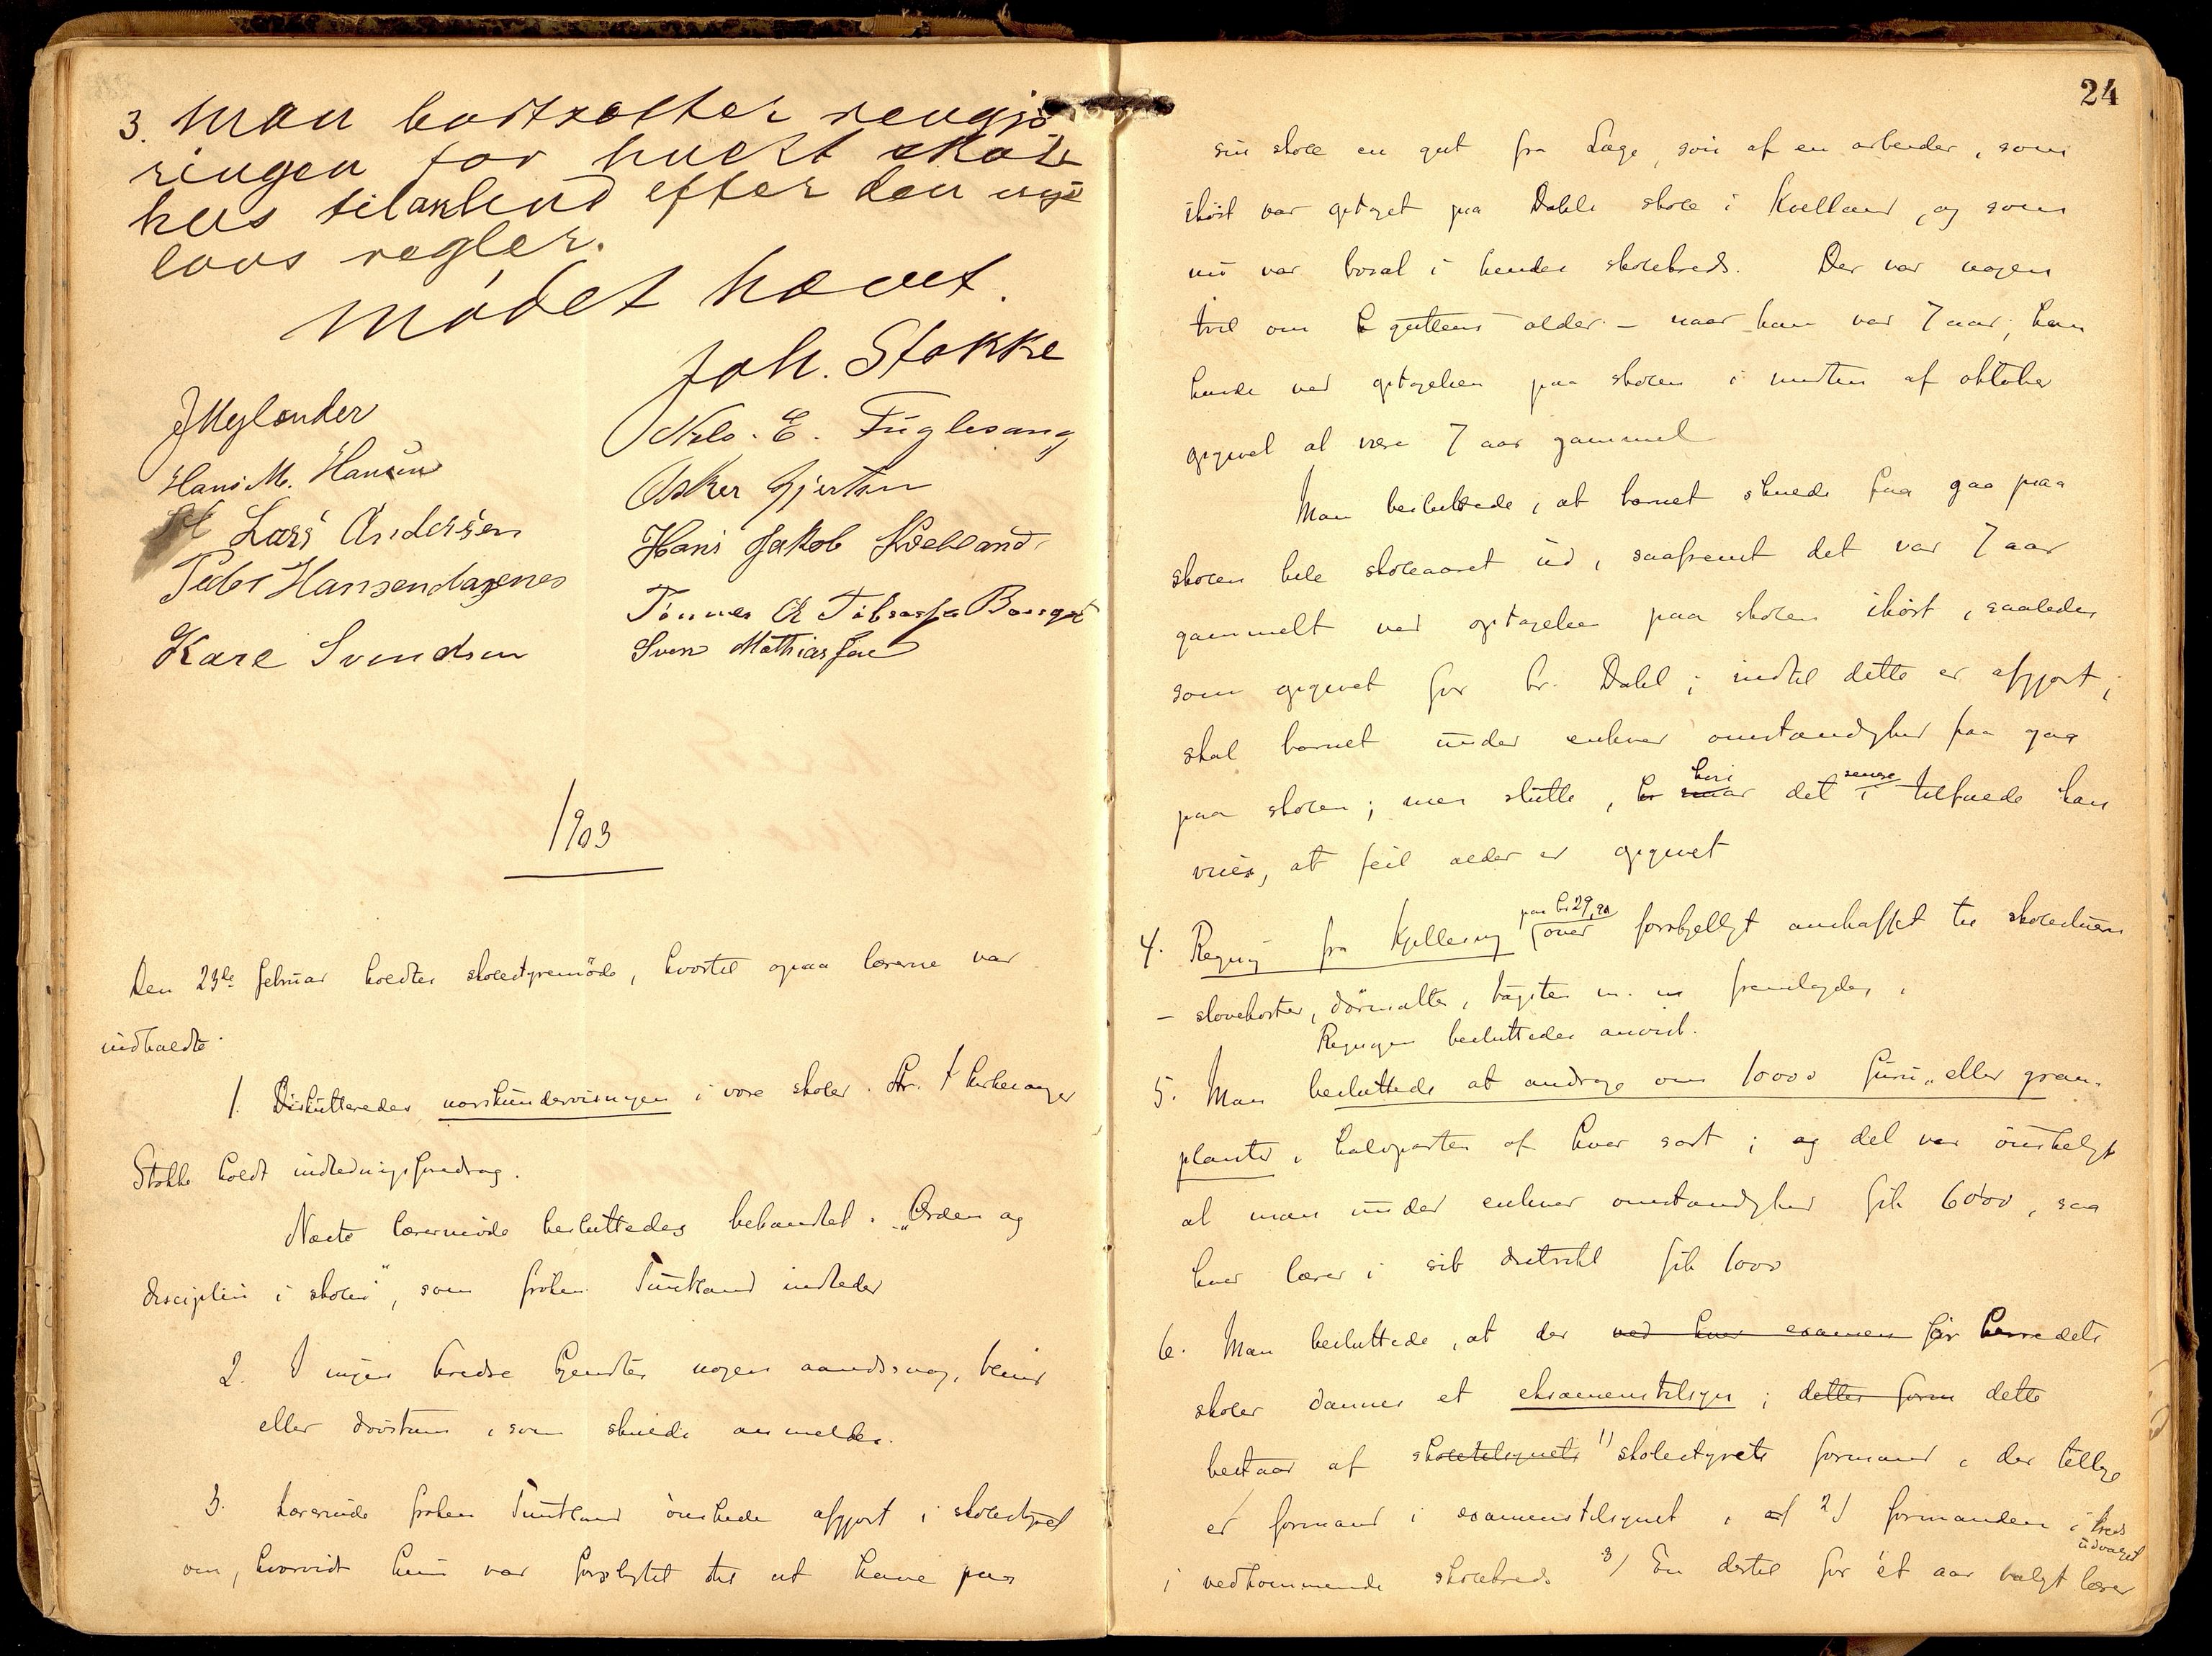 3. Man bortsætter rengjø
ringen for hvert skole
hus tilaarbud efter den nye
lovs regler.
Mødet hævet.
Joh. Stokke
J Mylander
Nils. E. Fuglesang
Hans M. Hansen
Osker Gjertsen
Lars Andersen
Hans Jakob Kvelland
Peder Hansen
Tønnes
Karl Svendsen
Sven Mathiassen
1903
Den 23de februar holdtes skolestyremøde, hvortil ogsaa lærerne var
indkaldte.
1. Diskutteredes norskundervisningen i vore skoler. Hr. kirkesanger
Stokke holdt indledningsforedrag.
Næste lærermøde besluttedes behandlet: „Orden og
disciplin i skolen", som frøken Tuntland indleder
2. I ingen kredse kjendtes nogen aandssvag, blind
eller døvstum, som skulde anmeldes.
3. Lærerinde frøken Tuntland ønskede afgjort i skolestyret
om, hvorvidt hun var forpligtet til at have paa
24
sin skole en gut fra Lægo, søn af en arbeider, som
ihøst var optaget paa Dahls skole i Kvelland, og som
nu var bosat i hendes skolekreds. Der var nogen
tvil om guttens alder – naar han var 7 aar; han
havde ved optagelsen paa skolen i midten af oktober
opgivet at være 7 aar gammel
Man besluttede, at barnet skulde faa gaa paa
skolen hele skoleaaret ud, saafremt det var 7 aar
gammelt ved optagelsen paa skolen ihøst, saaledes
som opgivet for hr. Dahl; indtil dette er afgjort,
skal barnet under enhver omstændighed faa gaa
paa skolen; men slutte, hvis det senere i tilfælde kan
vises, at feil alder er opgivet
4. Regning fra Kjellevig paa kr 29,90 over forskjelligt anskaffet til skolerne
– stovekoster, dørmatter, bøtter m. m fremlagdes,
Regningen besluttedes anvist.
5. Man besluttede at andrage om 10000 furu- eller gran-
planter, halvparten af hver sort; og det var ønskeligt
at man under enhver omstændighed fik 6000, saa
hver lærer i sit distrikt fik 1000
6. Man besluttede, at der ved hver examen for herredets
skoler dannes et eksamenstilsyn; dettes form dette
bestaar af skoletilsynets 1) skolestyrets formand, der tillige
er formand i examenstilsynet, af 2) formanden i kreds
udvalget
i vedkommende skolekreds 3) En dertil for ét aar valgt lærer